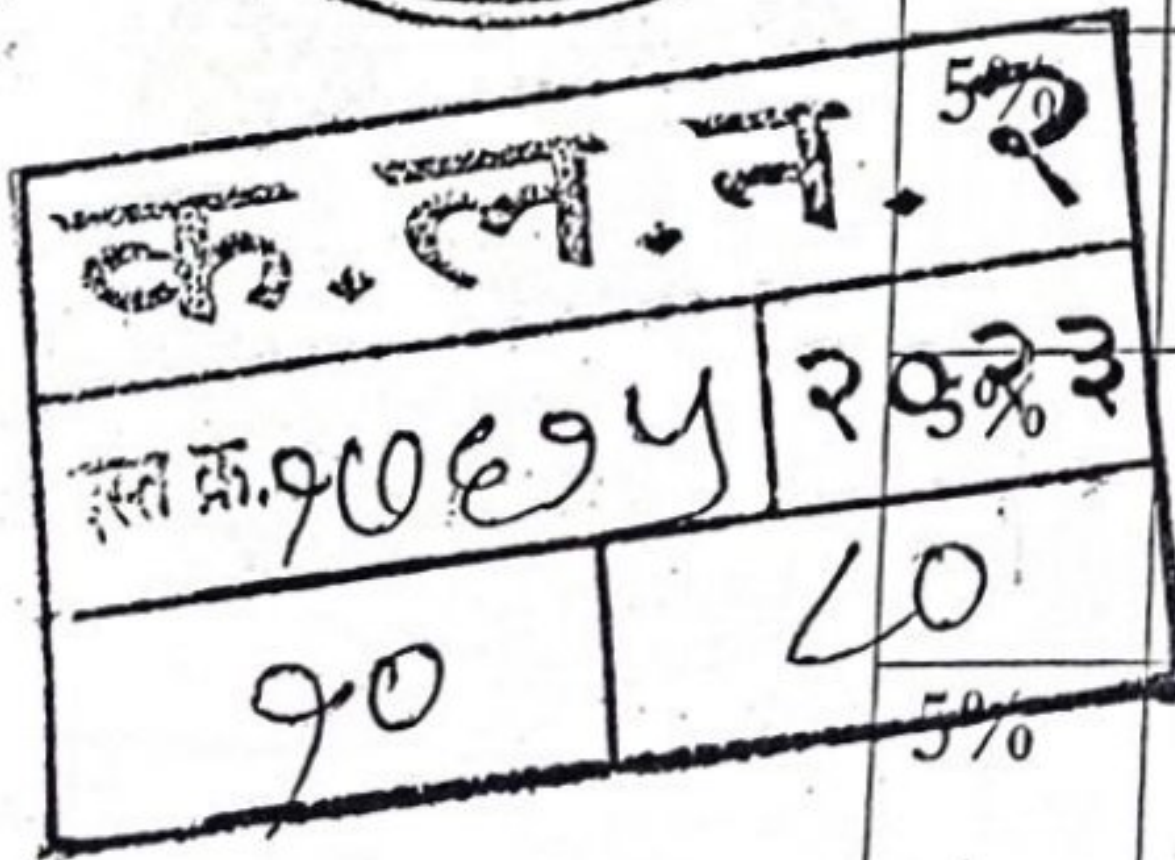 क.ल.न.२ 5%
दस्त क्र.१७६७५ २०२३ 5%
१० ८०
5%